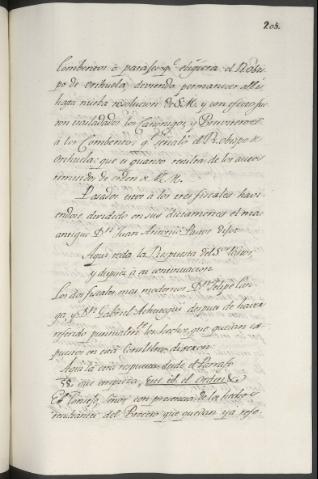 205.
Combentos o parages q.e eligiera el R. Obis-
po de orihuela, deviendo permanecer alli
haga nueba resolucion de S. M. y con efecto fue
ron trasladados los Canonigos y
a los Combentos q.e señaló el R. Obispo de
Orihuela: que es quanto resulta de los autos
remitidos de orden de S. M.
Pasados esto a los tres fiscales havi-
endose dividido en sus dictamenes el mas
antiguo D.n Juan Antonio
Aqui toda la Respuesta del S.or
y despues a su continuacion
Los dos fiscales mas modernos D.n Felipe
y D.n Gabriel despues de haver
referido puntualm.te los hechos que quedan ex-
puestos en esta Consulta, dixeron
Aqui la otra respuesta desde el Parrafo
58. que empieza, en el orden &
El Consejo, Señor, con presencia de los hechos y
resultancias del Proceso que quedan ya refe-